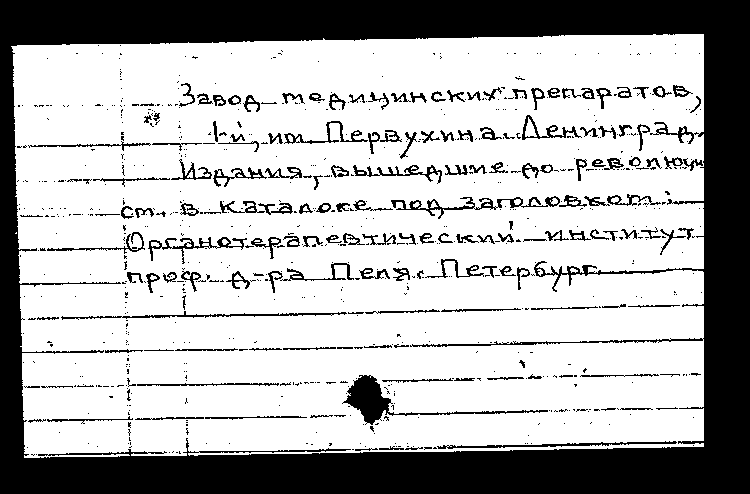 Завод медицинских препаратов,
1-й, им. Первухина. Ленинград.
Издания, вышедшие до революции
см. в каталоге под заголовком:
Органотерапевтический институт
проф. д-ра Пеля. Петербург.